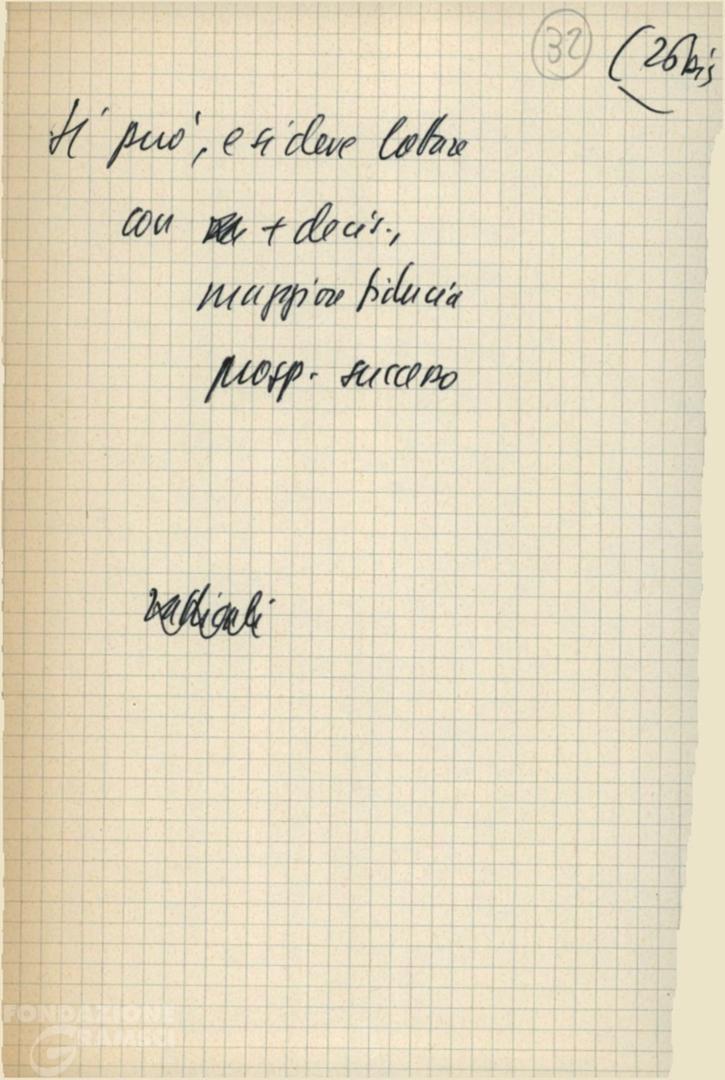 32
(26 bis
si può, e si deve lottare
con + decis.,
maggiore fiducia
prosp. successo
radicali
FONDAZIONE
GRAMSCI